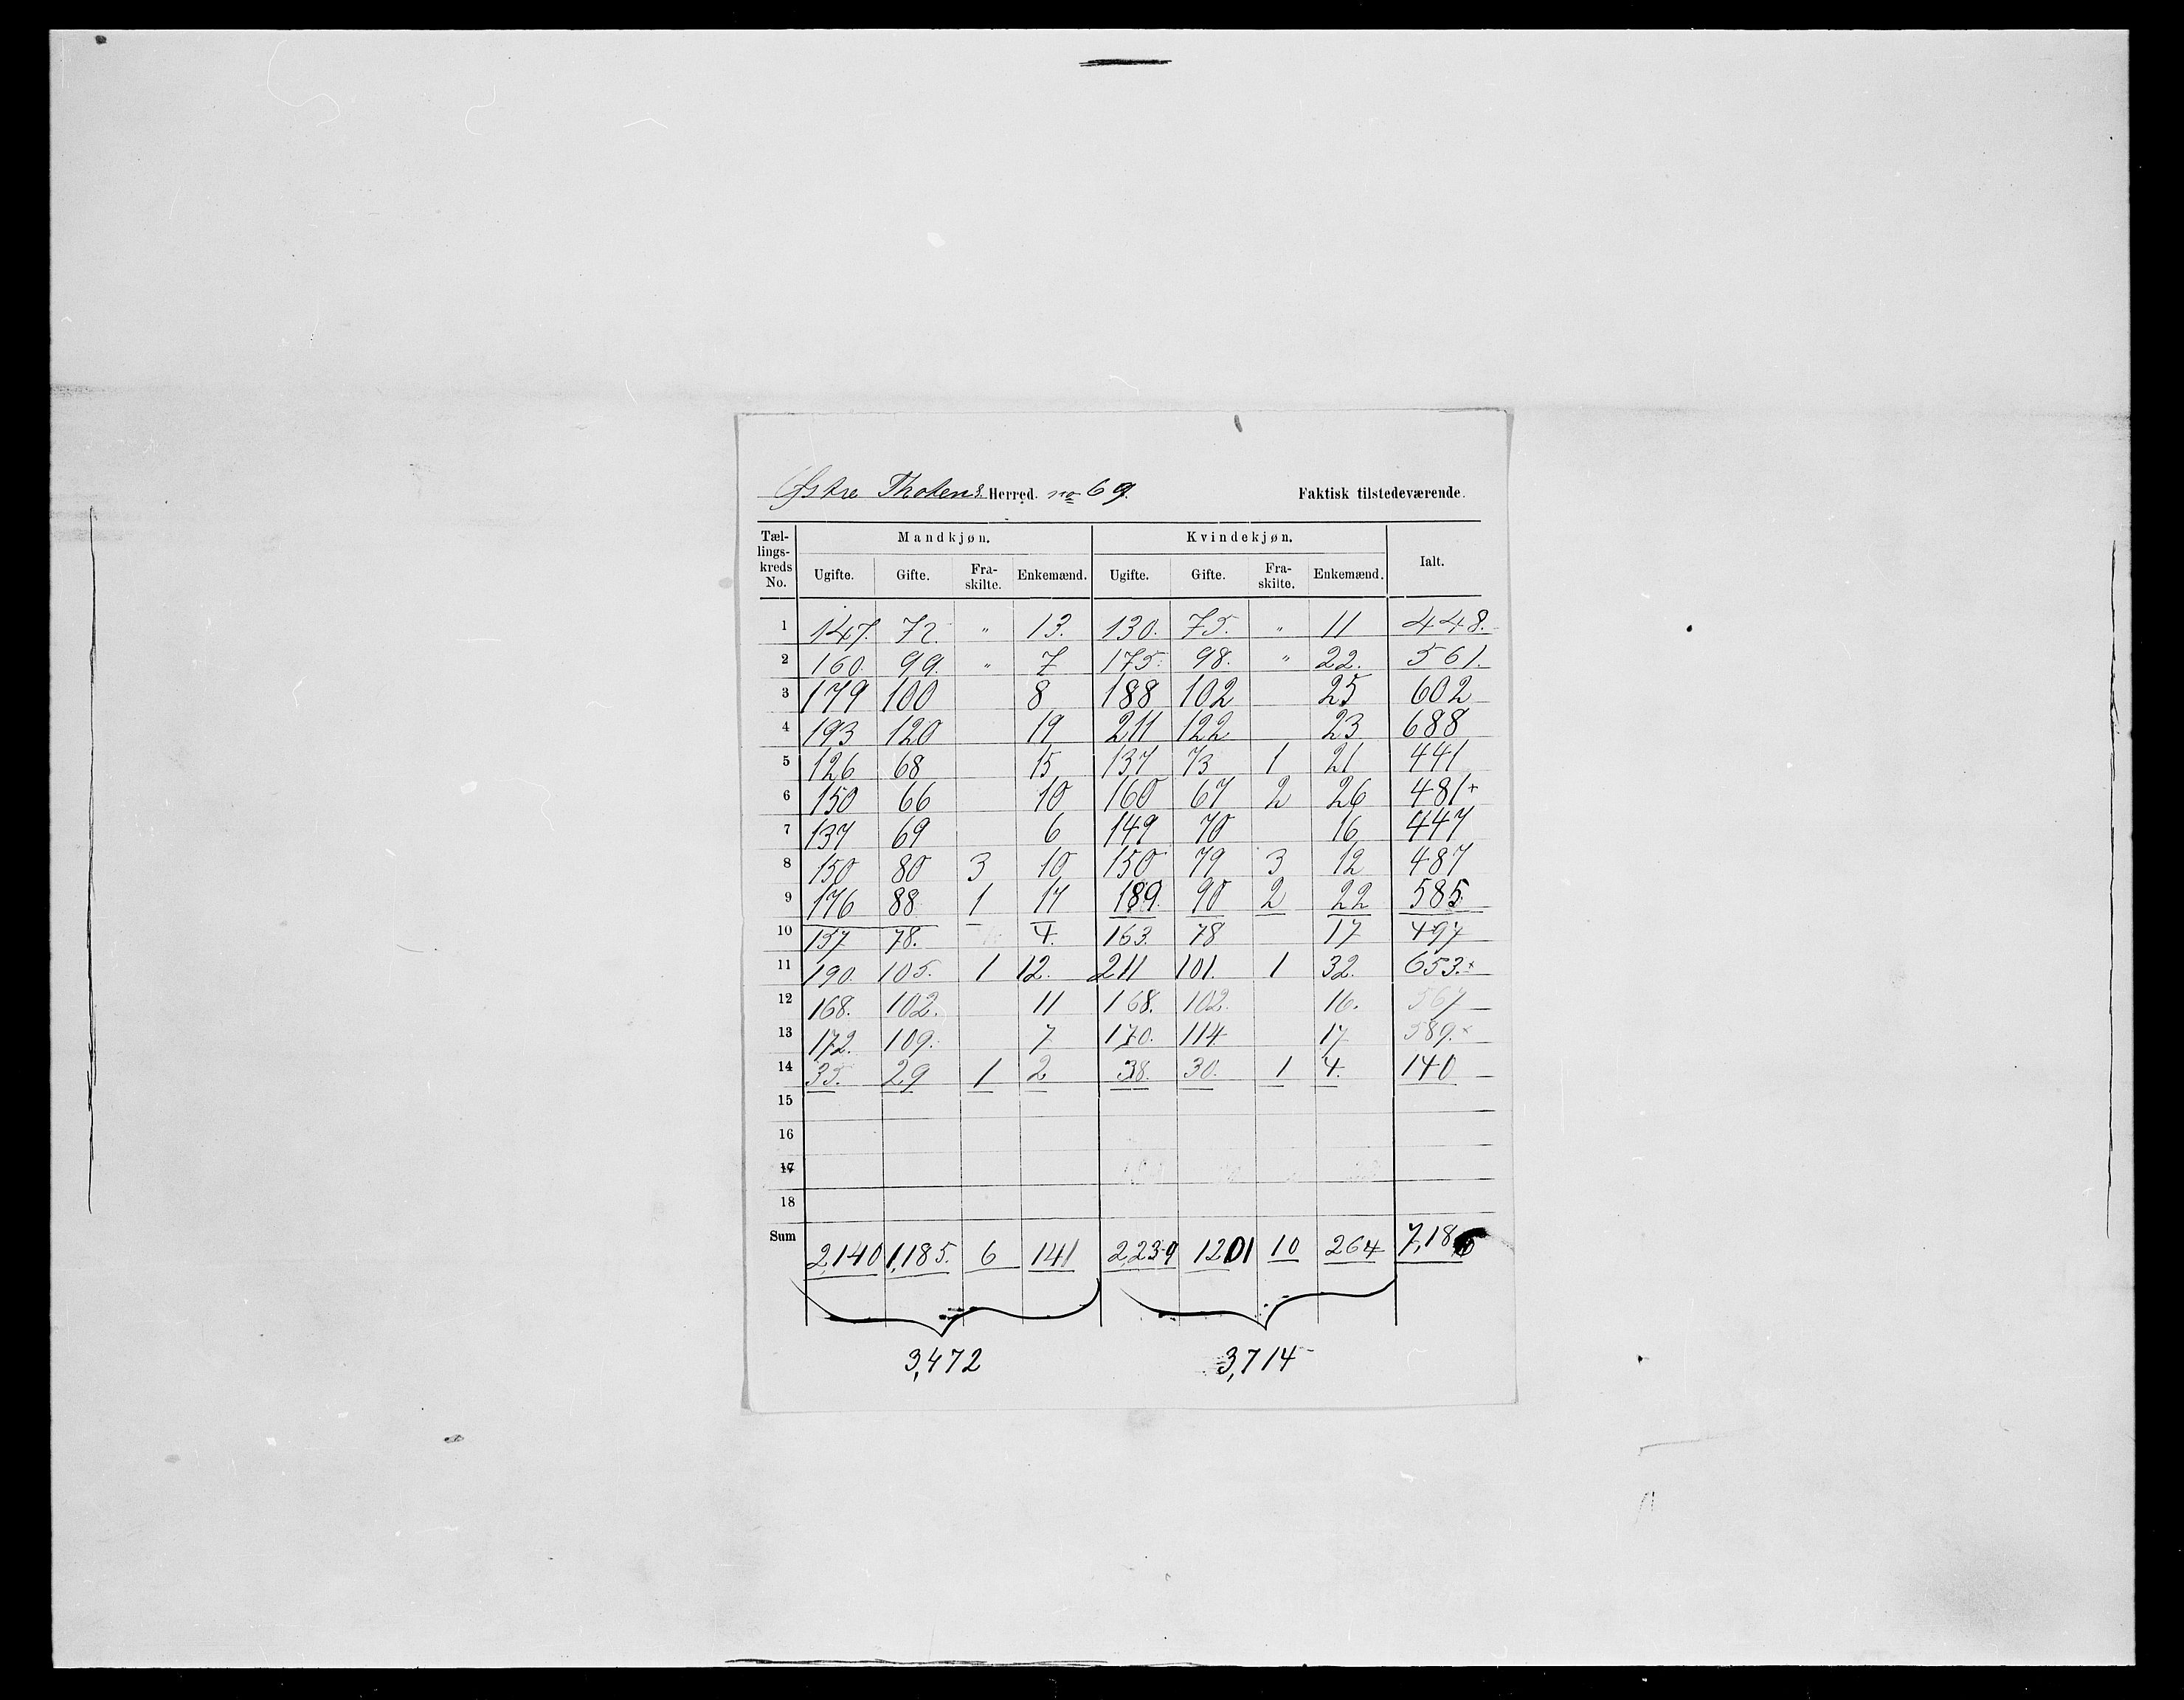 Østre Thotens Herred. no 69. Faktisk tilstedeværende.
Tæl-
lings-
kreds
No. Mandkjøn. Kvindekjøn. Ialt.
Ugifte. Gifte. Fra-
skilte. Enkemænd. Ugifte. Gifte. Fra-
skilte. Enkemænd.
1 147. 72. " 13. 130. 75. " 11 448.
2 160. 99. " 7 175. 98. " 22. 561.
3 179 100 8 188 102 25 602
4 193 120 19 211 122 23 688
5 126 68 15 137 73 1 21 441
6 150 66 10 160 67 2 26 481+
7 137 69 6 149 70 16 447
8 150 80 3 10 150 79 3 12 487
9 176 88 1 17 189. 90 2 22 585
10 157 78. 4. 163. 78 17 497
11 190. 105. 1 12. 211 101. 1 32. 653.x
12 168. 102. 11 168. 102. 16. 567
13 172. 109. 7 170. 114 17 589.x
14 35. 29 1 2 38. 30. 1 4. 140
15
16
17
18
Sum 2,140 1,185. 6 141 2,239 1201 10 264 7,186
3,472 3,714